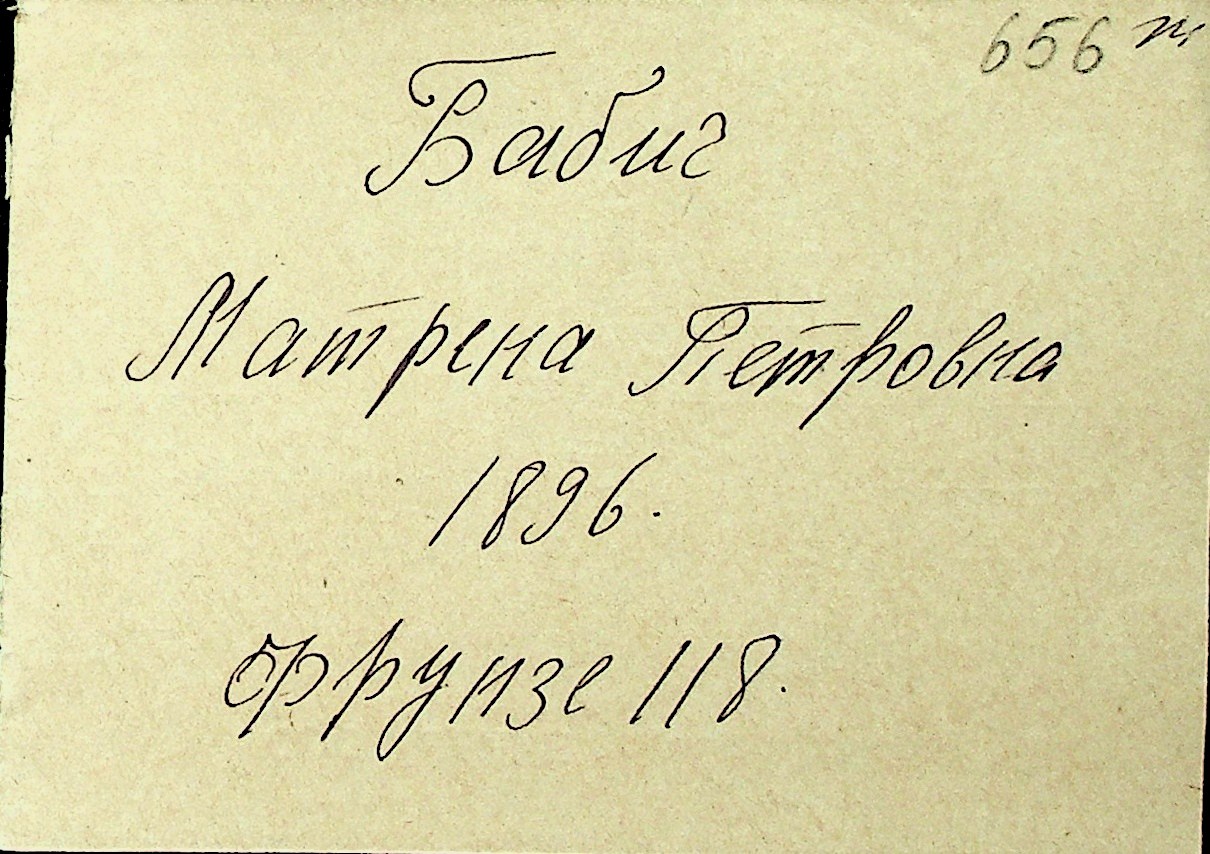 656 т
Бабич
Матрена Петровна
1896.
Фрунзе 118.